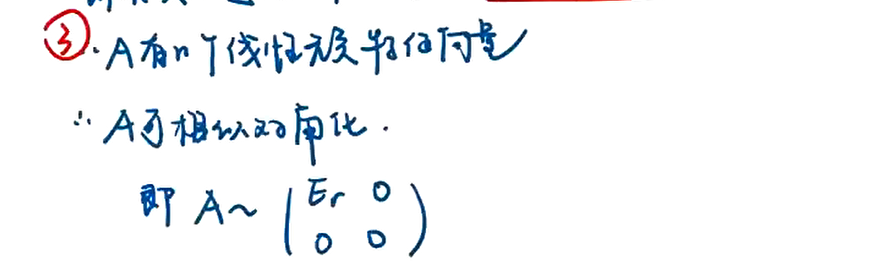 ③ ∵ A有n个线性无关特征向量
∴ A可相似对角化.
即 A~ (Er 0
0 0)